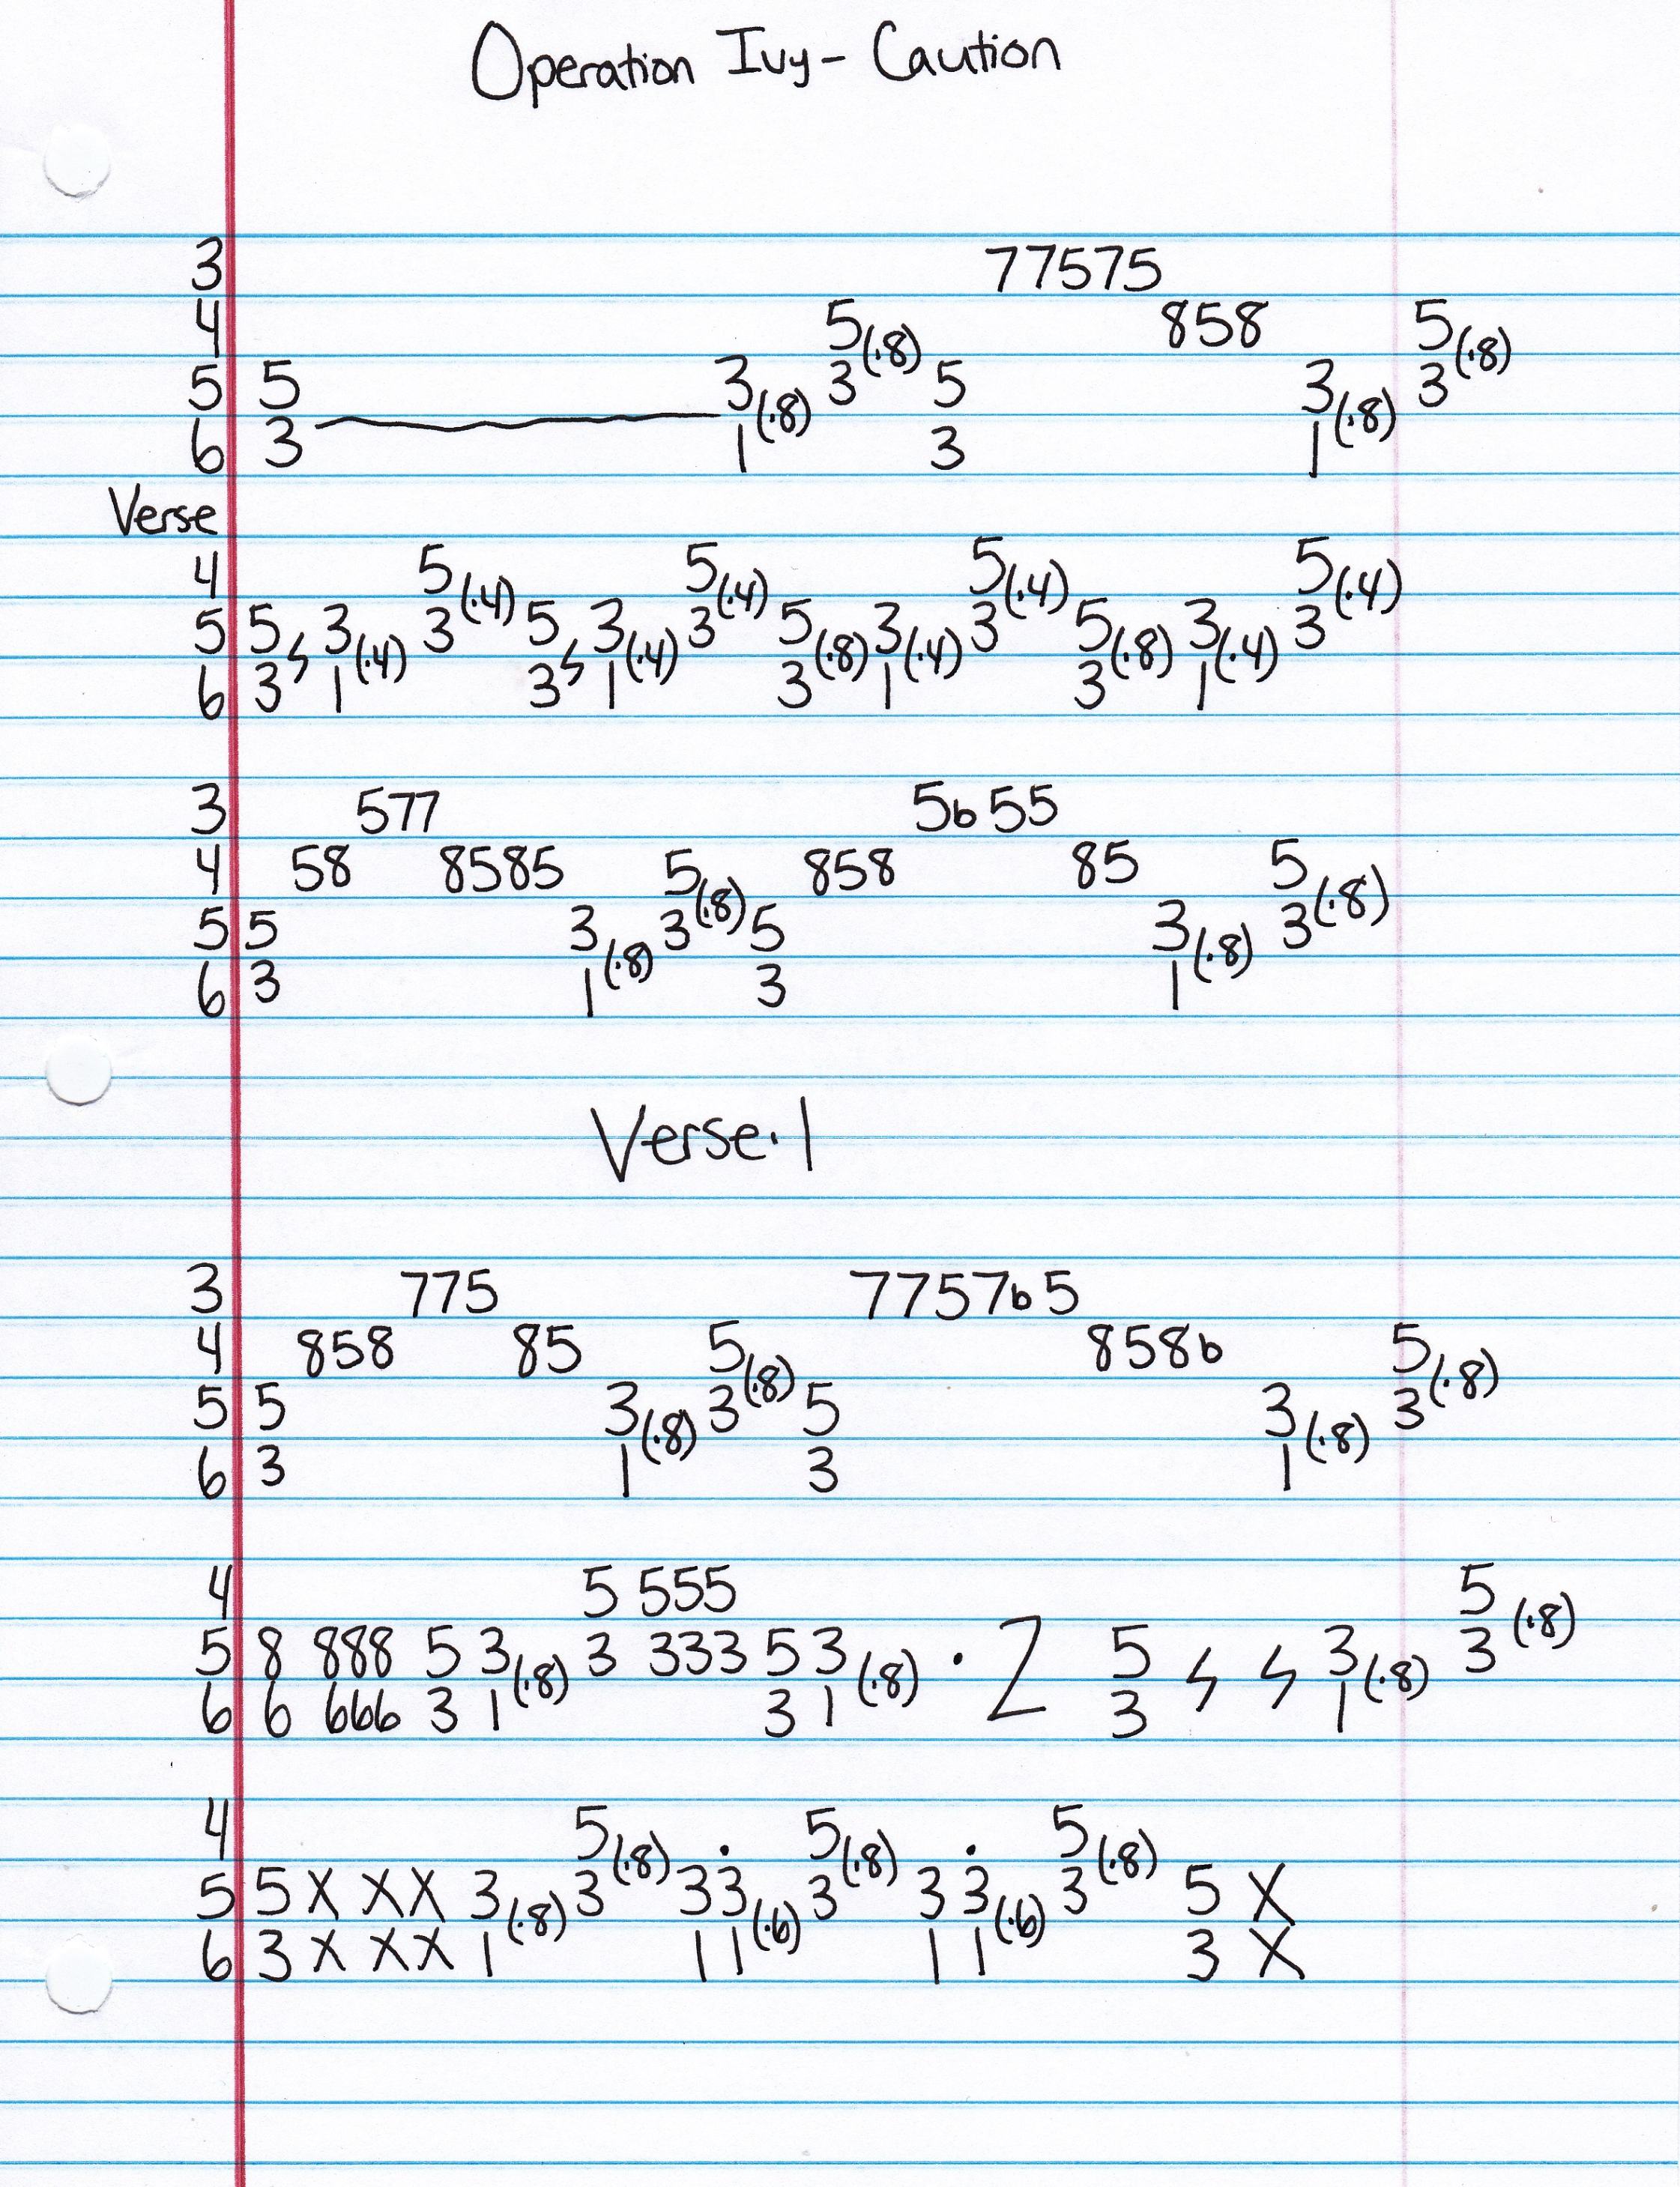 Operation Ivy - Caution
3 77575
4 5(·8) 858 5(·8)
5 5 3(·8) 3 5 3(·8) 3
6 3 1 3 1
Verse
4 5(·4) 5(·4) 5(·4) 5(·4)
5 5 3(·4) 3 5 3(·4) 3 5(·8) 3(·4) 3 5(·8) 3(·4) 3
6 3 1 3 1 3 1 3 1
3 577 5b 55
4 58 8585 5(·8) 858 85 5(·8)
5 5 3(·8) 3 5 3(·8) 3
6 3 1 3 1
Verse·1
3 775 7757b 5
4 858 85 5(·8) 858b 5(·8)
5 5 3(·8) 3 5 3(·8) 3
6 3 1 3 1
4 5 555 5(·8)
5 8 888 5 3(·8) 3 333 5 3(·8) · 2 5 3(·8) 3
6 6 666 3 1 3 1 3 1
4 5(·8) 5(·8) 5(·8)
5 5 X X X 3(·8) 3 3 3(·6) 3 3 3(·6) 3 5 X
6 3 X X X 1 1 1 1 1 3 X